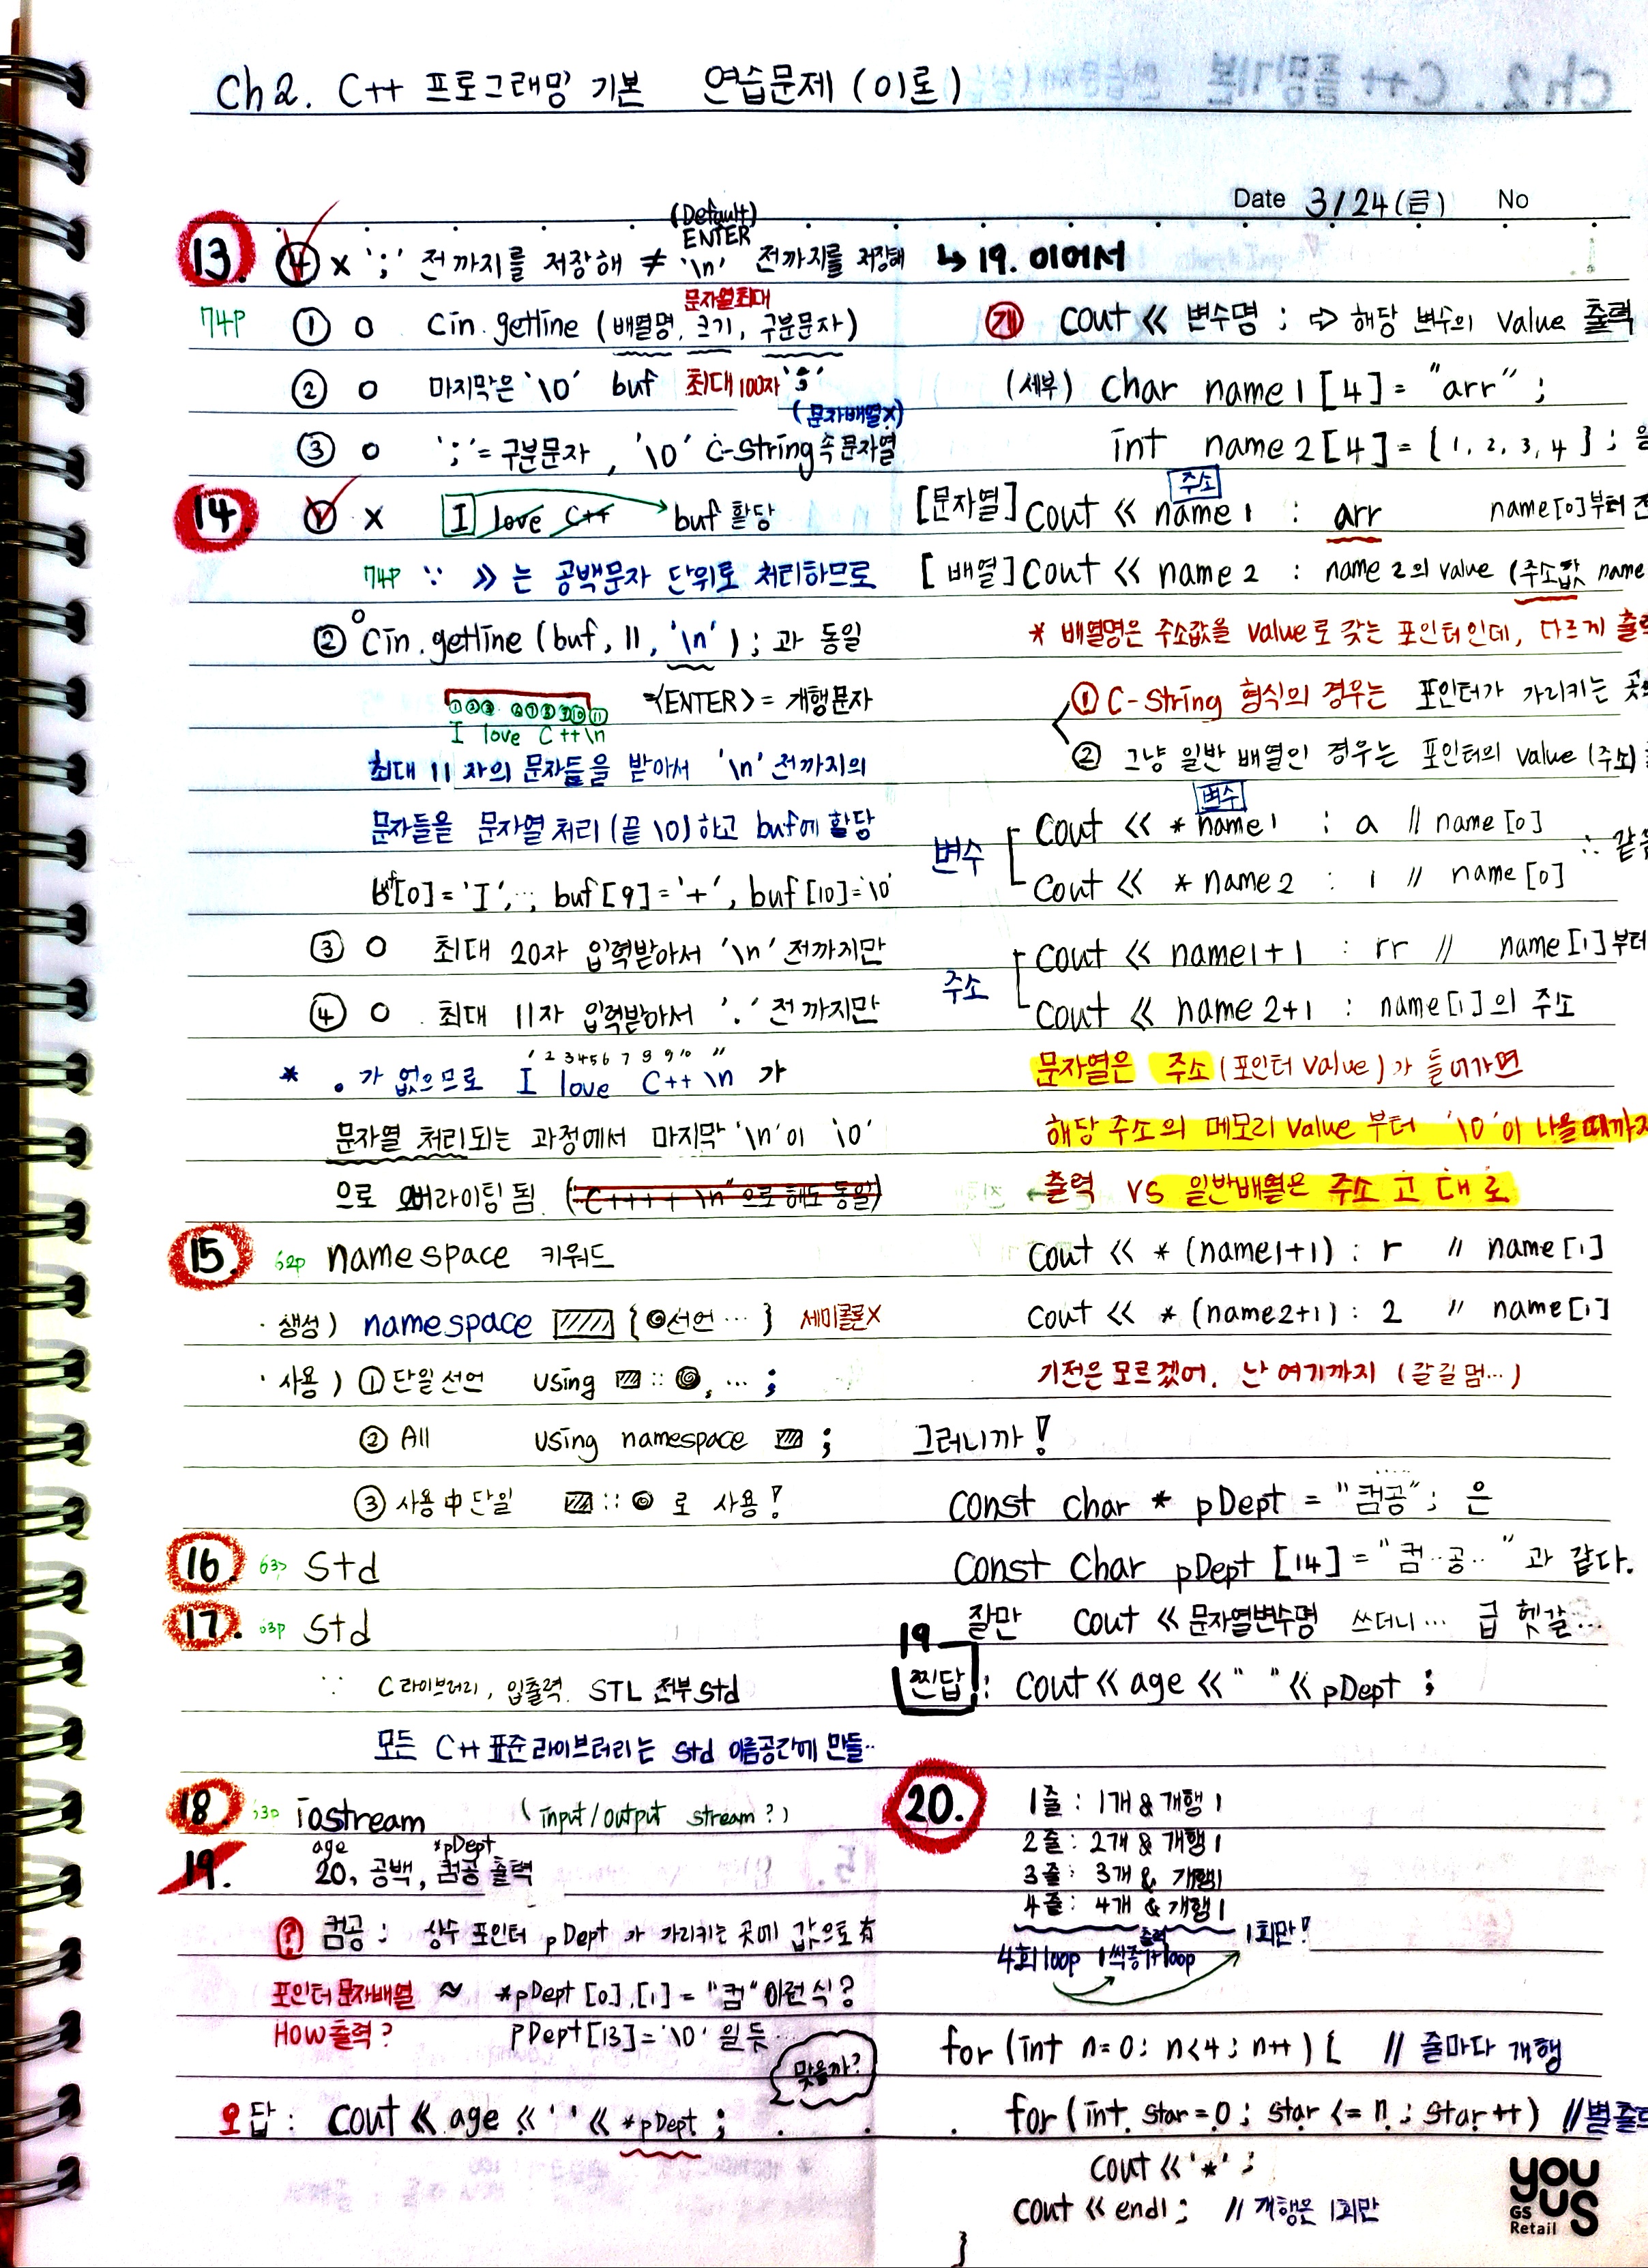 Ch2. C++ 프로그래밍 기본 연습문제 (이론)
Date 3/24(금) No
13. ④ X ';' 전까지를 저장해 ≠ '\n' 전까지를 저장해
(Default)
ENTER
74P ① O Cin.getline (배열명, 크기, 구분문자)
문자열최대
② O 마지막은 '\0' buf 최대100자 ';'
(문자배열X)
③ O ';'= 구분문자, '\0' C-String 속 문자열
14. ① X I love C++ buf 할당
74P ∵ >> 는 공백문자 단위로 처리하므로
② O Cin.getline (buf, 11, '\n'); 과 동일
=<ENTER> = 개행문자
I love C++\n
최대 11자의 문자들을 받아서 '\n' 전까지의
문자들을 문자열 처리 (끝 \0)하고 buf에 할당
buf[0]='I', …, buf[9]='+', buf[10]='\0'
③ O 최대 20자 입력받아서 '\n' 전까지만
④ O 최대 11자 입력받아서 '.' 전까지만
1 2 3 4 5 6 7 8 9 10 11
* . 가 없으므로 I love C++ \n 가
문자열 처리되는 과정에서 마지막 '\n'이 '\0'
으로 오버라이팅 됨. ("C++++\n"으로 해도 동일)
15. 62p namespace 키워드
· 생성) namespace { 선언 … } 세미콜론X
· 사용) ① 단일선언 using :: , … ;
② All using namespace ;
③ 사용中단일 :: 로 사용!
16. 63p std
17. 63p std
∵ C라이브러리, 입출력, STL 전부 std
모든 C++ 표준라이브러리는 std 이름공간에 만들..
18. 63p iostream (input/output stream?)
age *pDept
19. 20, 공백, 컴공 출력
? 컴공: 상수 포인터 pDept 가 가리키는 곳에 값으로 有
포인터 문자배열 ≈ *pDept[0],[1] = "컴" 이런식?
How출력? pDept[13]='\0' 일듯…
맞을까?
오답: cout << age << ' ' << *pDept ;
↳ 19. 이어서
개 cout << 변수명 ; ⇨ 해당 변수의 value 출력
(세부) char name1[4] = "arr" ;
int name2[4] = {1, 2, 3, 4} ;
주소
[문자열] cout << name1 : arr name[0]부터
[배열] cout << name2 : name2의 value (주소값 name
* 배열명은 주소값을 value로 갖는 포인터인데, 다르게 출력
① C-String 형식의 경우는 포인터가 가리키는 곳의
② 그냥 일반 배열인 경우는 포인터의 value (주소)
변수
변수 cout << *name1 : a // name[0]
cout << *name2 : 1 // name[0] ∴ 같음
주소 cout << name1+1 : rr // name[1]부터
cout << name2+1 : name[1]의 주소
문자열은 주소 (포인터 value)가 들어가면
해당 주소의 메모리 value 부터 '\0'이 나올때까지
출력 vs 일반배열은 주소 고대로
cout << *(name1+1) : r // name[1]
cout << *(name2+1) : 2 // name[1]
기전은 모르겠어. 난 여기까지 (갈길 멈…)
그러니까!
const char * pDept = "컴공"; 은
const char pDept [14] = "컴‥공‥" 과 같다.
잘만 cout << 문자열변수명 쓰더니… 급 헷갈…
19 찐답!: cout << age << " " << pDept ;
20. 1줄: 1개 & 개행1
2줄: 2개 & 개행1
3줄: 3개 & 개행1
4줄: 4개 & 개행1
4회loop 출력 1씩증가loop 1회만!
for (int n=0; n<4; n++) { // 줄마다 개행
for (int star=0; star <= n; star++) // 별 출
cout << '*' ;
cout << endl; // 개행은 1회만
}
you us
GS Retail